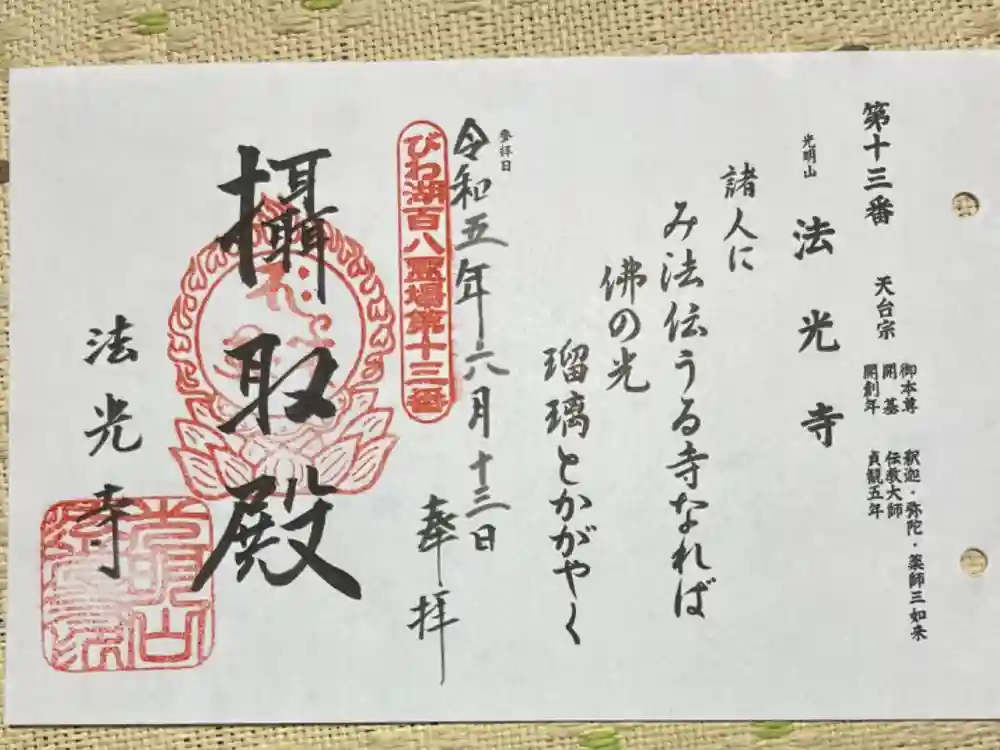 第十三番
天台宗
御本尊 釈迦・弥陀・薬師三如来
開基 伝教大師
開創年 貞観五年
光明山
法光寺
諸人に
み法伝うる寺なれば
佛の光
瑠璃とかがやく
登拝日
令和五年六月十三日
奉拝
びわ湖百八霊場第十三番
攝取殿
法光寺
光明山